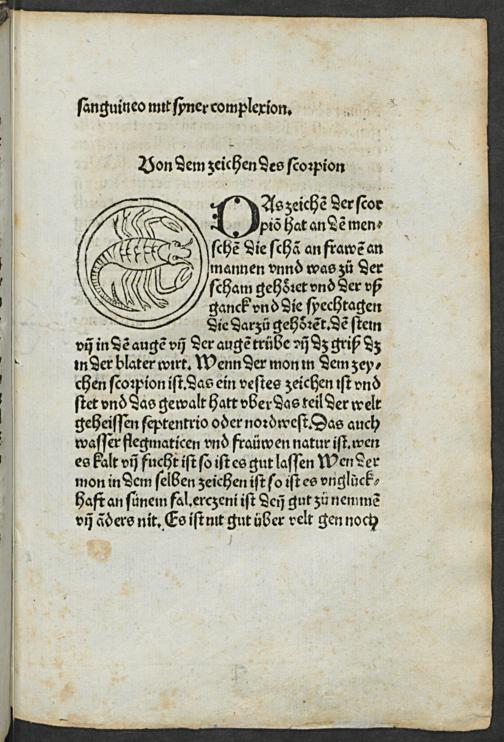 sanguineo mit syner complexion.
Von dem zeichen des scorpion
DAs zeichē der scor
piō hat an dē men⸗
schē die schā an frawē an
mannen vnnd was zů der
scham gehöret vnd der vß
ganck vnd die syechtagen
die darzů gehörēt. dē stein
vn̄ in dē augē vn̄ der augē trübe vn̄ dz griß dz
in der blater wirt. Wenn der mon in dem zey⸗
chen scorpion ist. das ein vestes zeichen ist vnd
stet vnd das gewalt hatt vber das teil der welt
geheissen septentrio oder nordwest. Das auch
wasser flegmaticen vnd fraüwen natur ist. wen
es kalt vn̄ fücht ist so ist es gut lassen Wen der
mon in dem selben zeichen ist so ist es vnglück⸗
hafft an sünem fal. erczeni ist den̄ gut zü nemmē
vn̄ āders nit. Es ist nit gut über velt gen noch